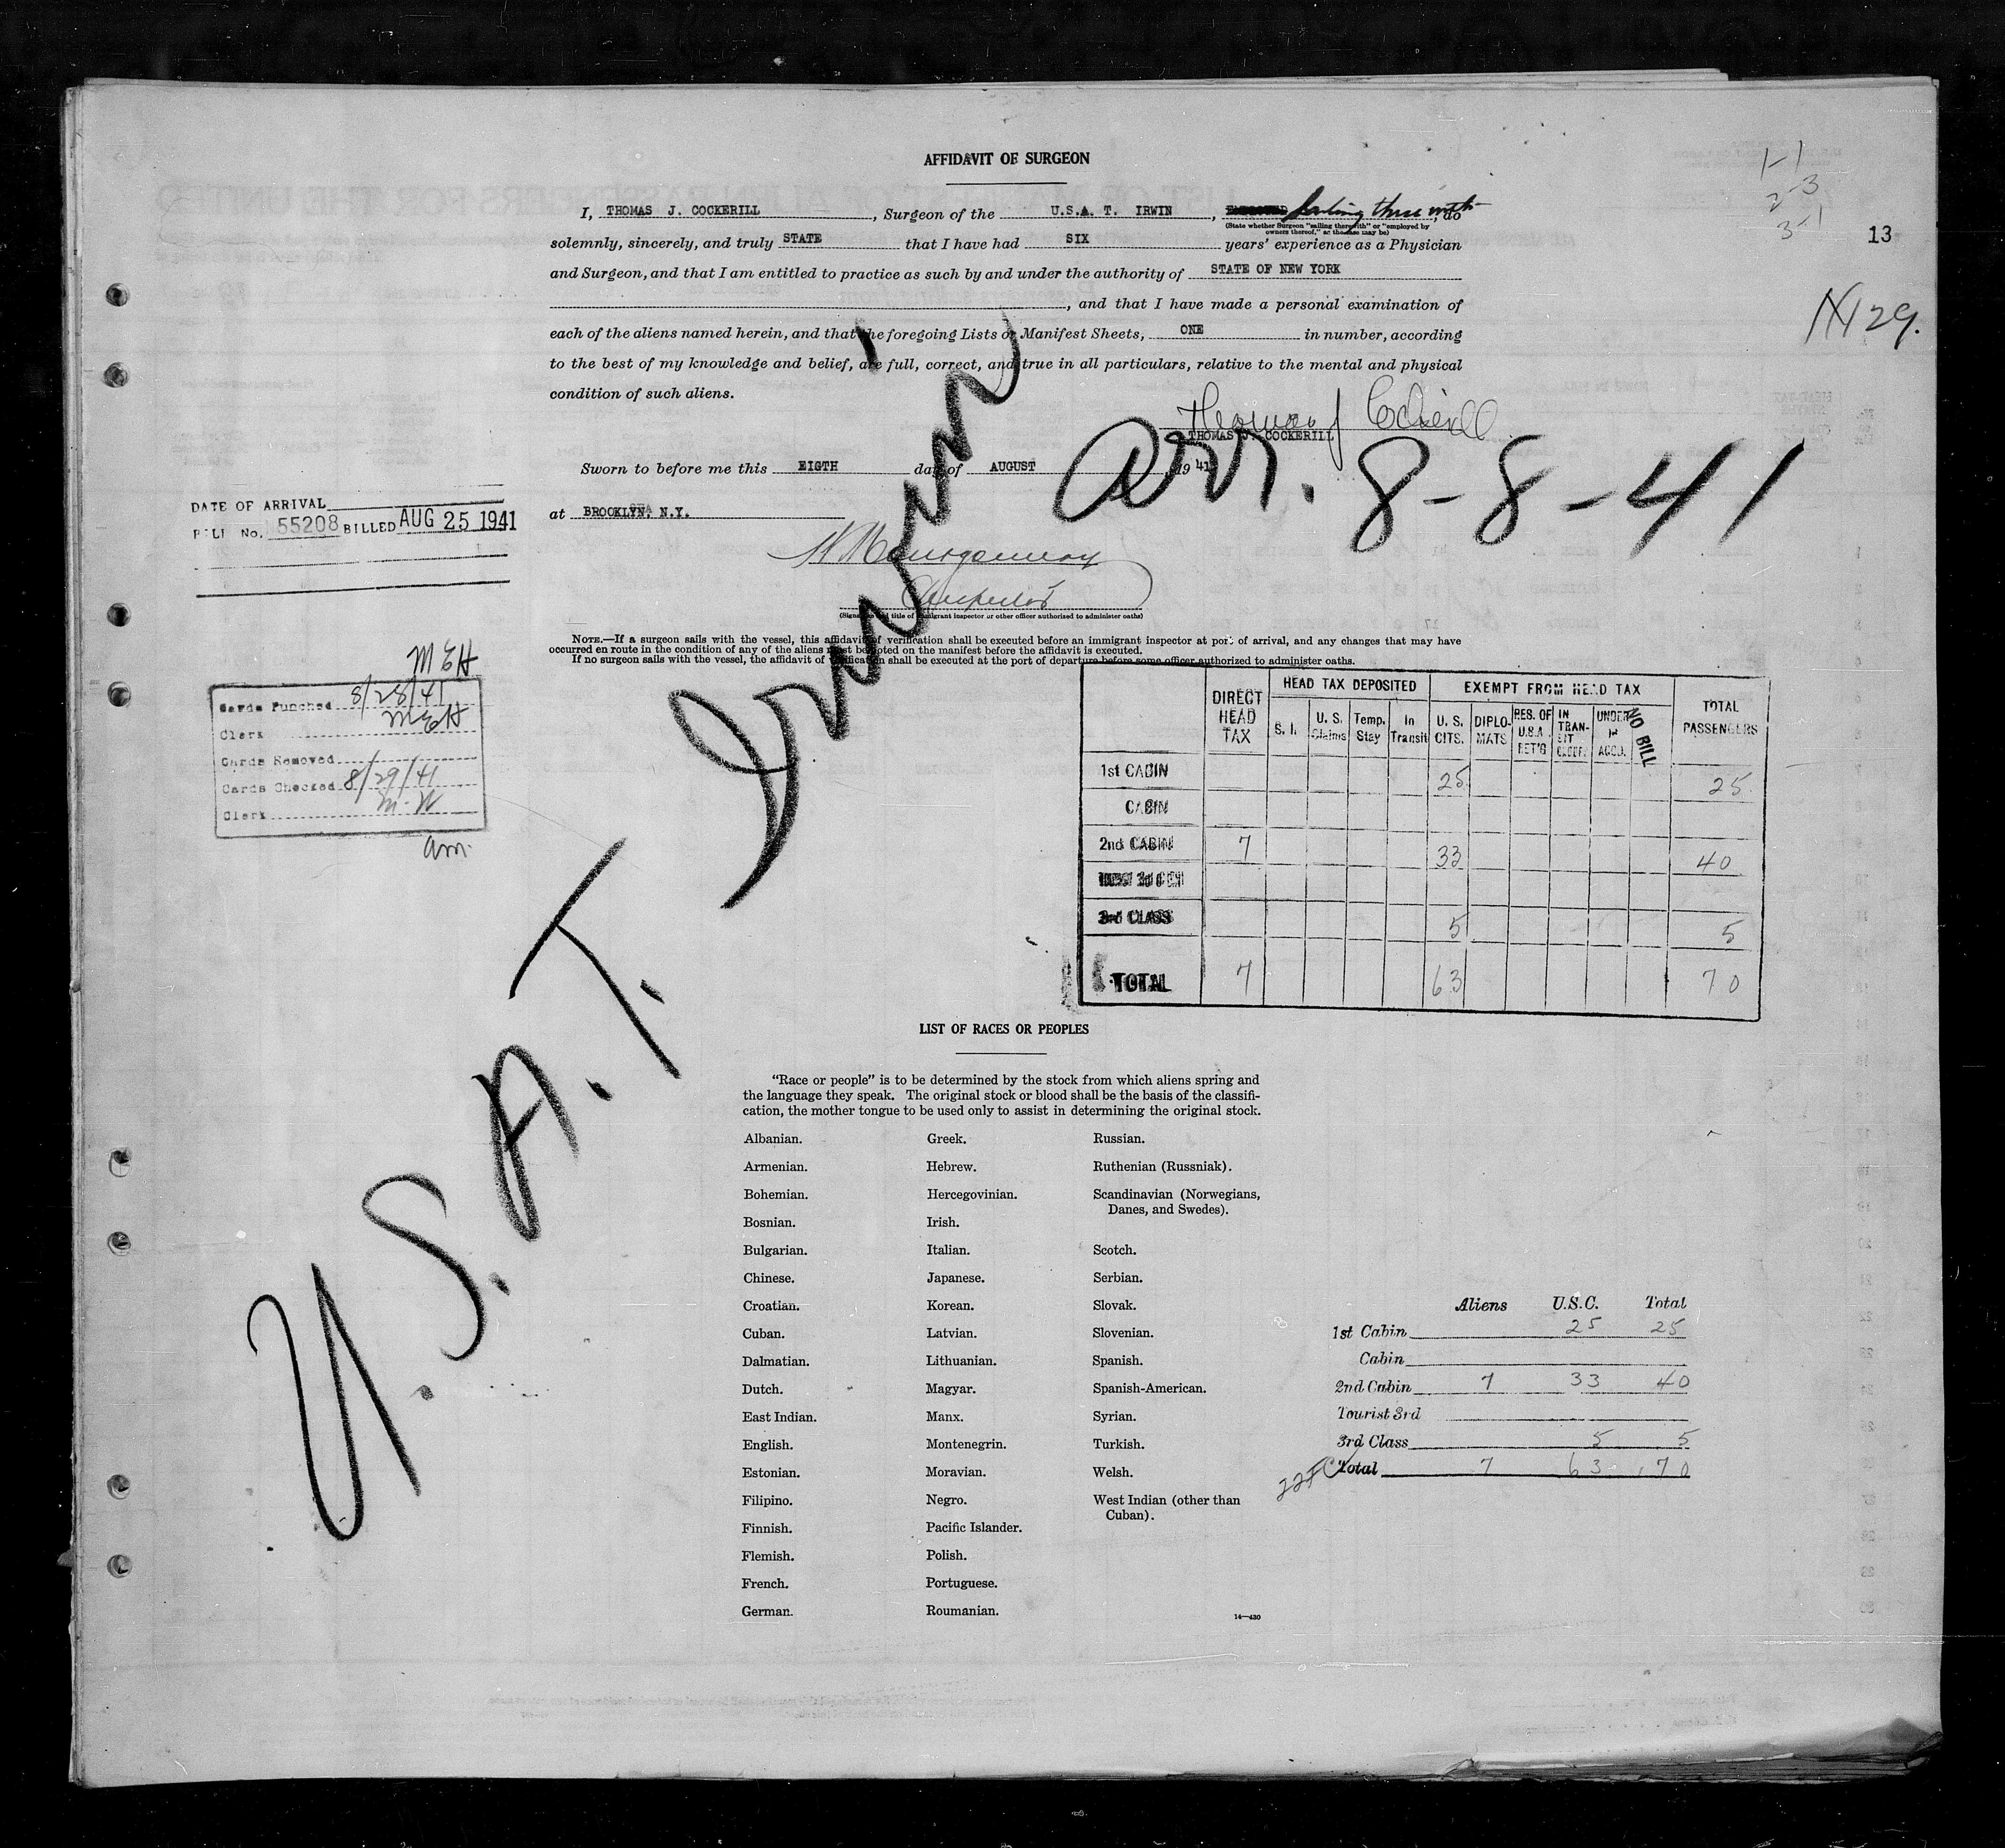 AFFIDAVIT OF SURGEON
I, THOMAS J. COCKERILL, Surgeon of the U.S.A. T. IRWIN, sailing therewith, do
(State whether Surgeon "sailing therewith" or "employed by
owners thereof," as the case may be)
solemnly, sincerely, and truly STATE that I have had SIX years' experience as a Physician
and Surgeon, and that I am entitled to practice as such by and under the authority of STATE OF NEW YORK
, and that I have made a personal examination of
each of the aliens named herein, and that the foregoing Lists or Manifest Sheets, ONE in number, according
to the best of my knowledge and belief, are full, correct, and true in all particulars, relative to the mental and physical
condition of such aliens.
1-1
2-3
3-1
13
29.
Thomas J Cockerill
THOMAS J. COCKERILL
Sworn to before me this EIGTH day of AUGUST, 1941
at BROOKLYN, N.Y.
Arr. 8-8-41
DATE OF ARRIVAL
BILL No. 55208 BILLED AUG 25 1941
Montgomery
Inspector
(Signature and title of immigrant inspector or other officer authorized to administer oaths)
NOTE.—If a surgeon sails with the vessel, this affidavit of verification shall be executed before an immigrant inspector at port of arrival, and any changes that may have
occurred en route in the condition of any of the aliens must be noted on the manifest before the affidavit is executed.
If no surgeon sails with the vessel, the affidavit of verification shall be executed at the port of departure before some officer authorized to administer oaths.
MEH
Cards Punched 8/28/41
Clerk MEH
Cards Removed
Cards Checked 8/29/41
Clerk M.W
am.
U.S.A.T. Irwin
DIRECT HEAD TAX HEAD TAX DEPOSITED EXEMPT FROM HEAD TAX TOTAL PASSENGERS
S. I. U. S. Claims Temp. Stay In Transit U. S. CITS. DIPLO-MATS RES. OF U.S.A. RET'G IN TRAN-SIT UNDER NO BILL
1st CABIN 25 25
CABIN
2nd CABIN 7 33 40
3rd CLASS 5 5
TOTAL 7 63 70
LIST OF RACES OR PEOPLES
"Race or people" is to be determined by the stock from which aliens spring and
the language they speak. The original stock or blood shall be the basis of the classifi-
cation, the mother tongue to be used only to assist in determining the original stock.
Albanian.
Armenian.
Bohemian.
Bosnian.
Bulgarian.
Chinese.
Croatian.
Cuban.
Dalmatian.
Dutch.
East Indian.
English.
Estonian.
Filipino.
Finnish.
Flemish.
French.
German.
Greek.
Hebrew.
Hercegovinian.
Irish.
Italian.
Japanese.
Korean.
Latvian.
Lithuanian.
Magyar.
Manx.
Montenegrin.
Moravian.
Negro.
Pacific Islander.
Polish.
Portuguese.
Roumanian.
Russian.
Ruthenian (Russniak).
Scandinavian (Norwegians,
Danes, and Swedes).
Scotch.
Serbian.
Slovak.
Slovenian.
Spanish.
Spanish-American.
Syrian.
Turkish.
Welsh.
West Indian (other than
Cuban).
14—430
Aliens U.S.C. Total
1st Cabin 25 25
Cabin
2nd Cabin 7 33 40
Tourist 3rd
3rd Class 5 5
Total 7 63 70